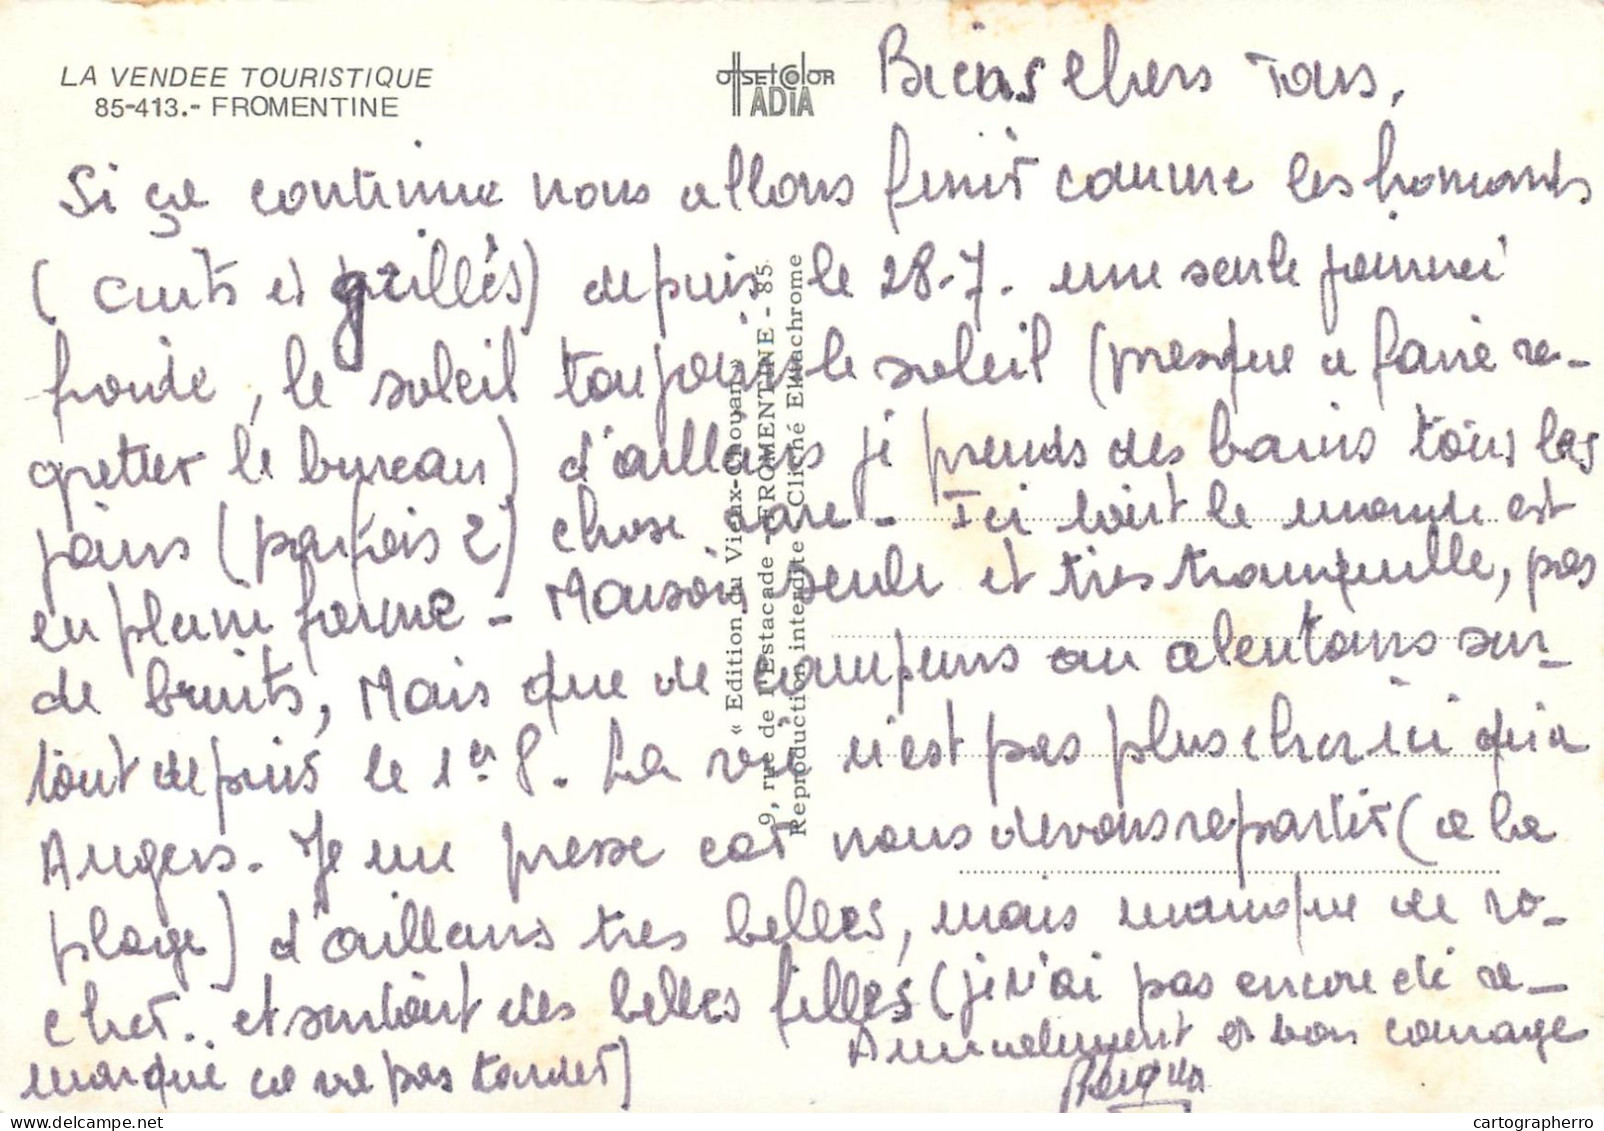 LA VENDEE TOURISTIQUE
85-413.- FROMENTINE
OffSEtColOR
ADIA
chers Tous,
Si ça continue nous allons finir comme les homards
(cuits et grillés) depuis le 28-7. une seule journée
froide, le soleil toujours le soleil (presque a faire re-
gretter le bureau) d'ailleurs je prends des bains tous les
jours (parfois 2) chose rare - Ici tout le monde est
en pleine forme - Maison seule et très tranquille, pas
de bruits, Mais que de campeurs au alentours sur-
tout depuis le 1er 8. La vie n'est pas plus cher ici qu'a
Angers. Je me presse car nous devons repartir (a la
plage) d'ailleurs très belles, mais manque de ro-
cher.. et surtout des belles filles (je n'ai pas encore été re-
marqué ça ne va pas tarder)
Amicalement et bon courage
« Edition du Vieux-Chouan »
9, rue de l'Estacade - FROMENTINE - 85
Reproduction interdite - Cliché Ektachrome
cartographerro